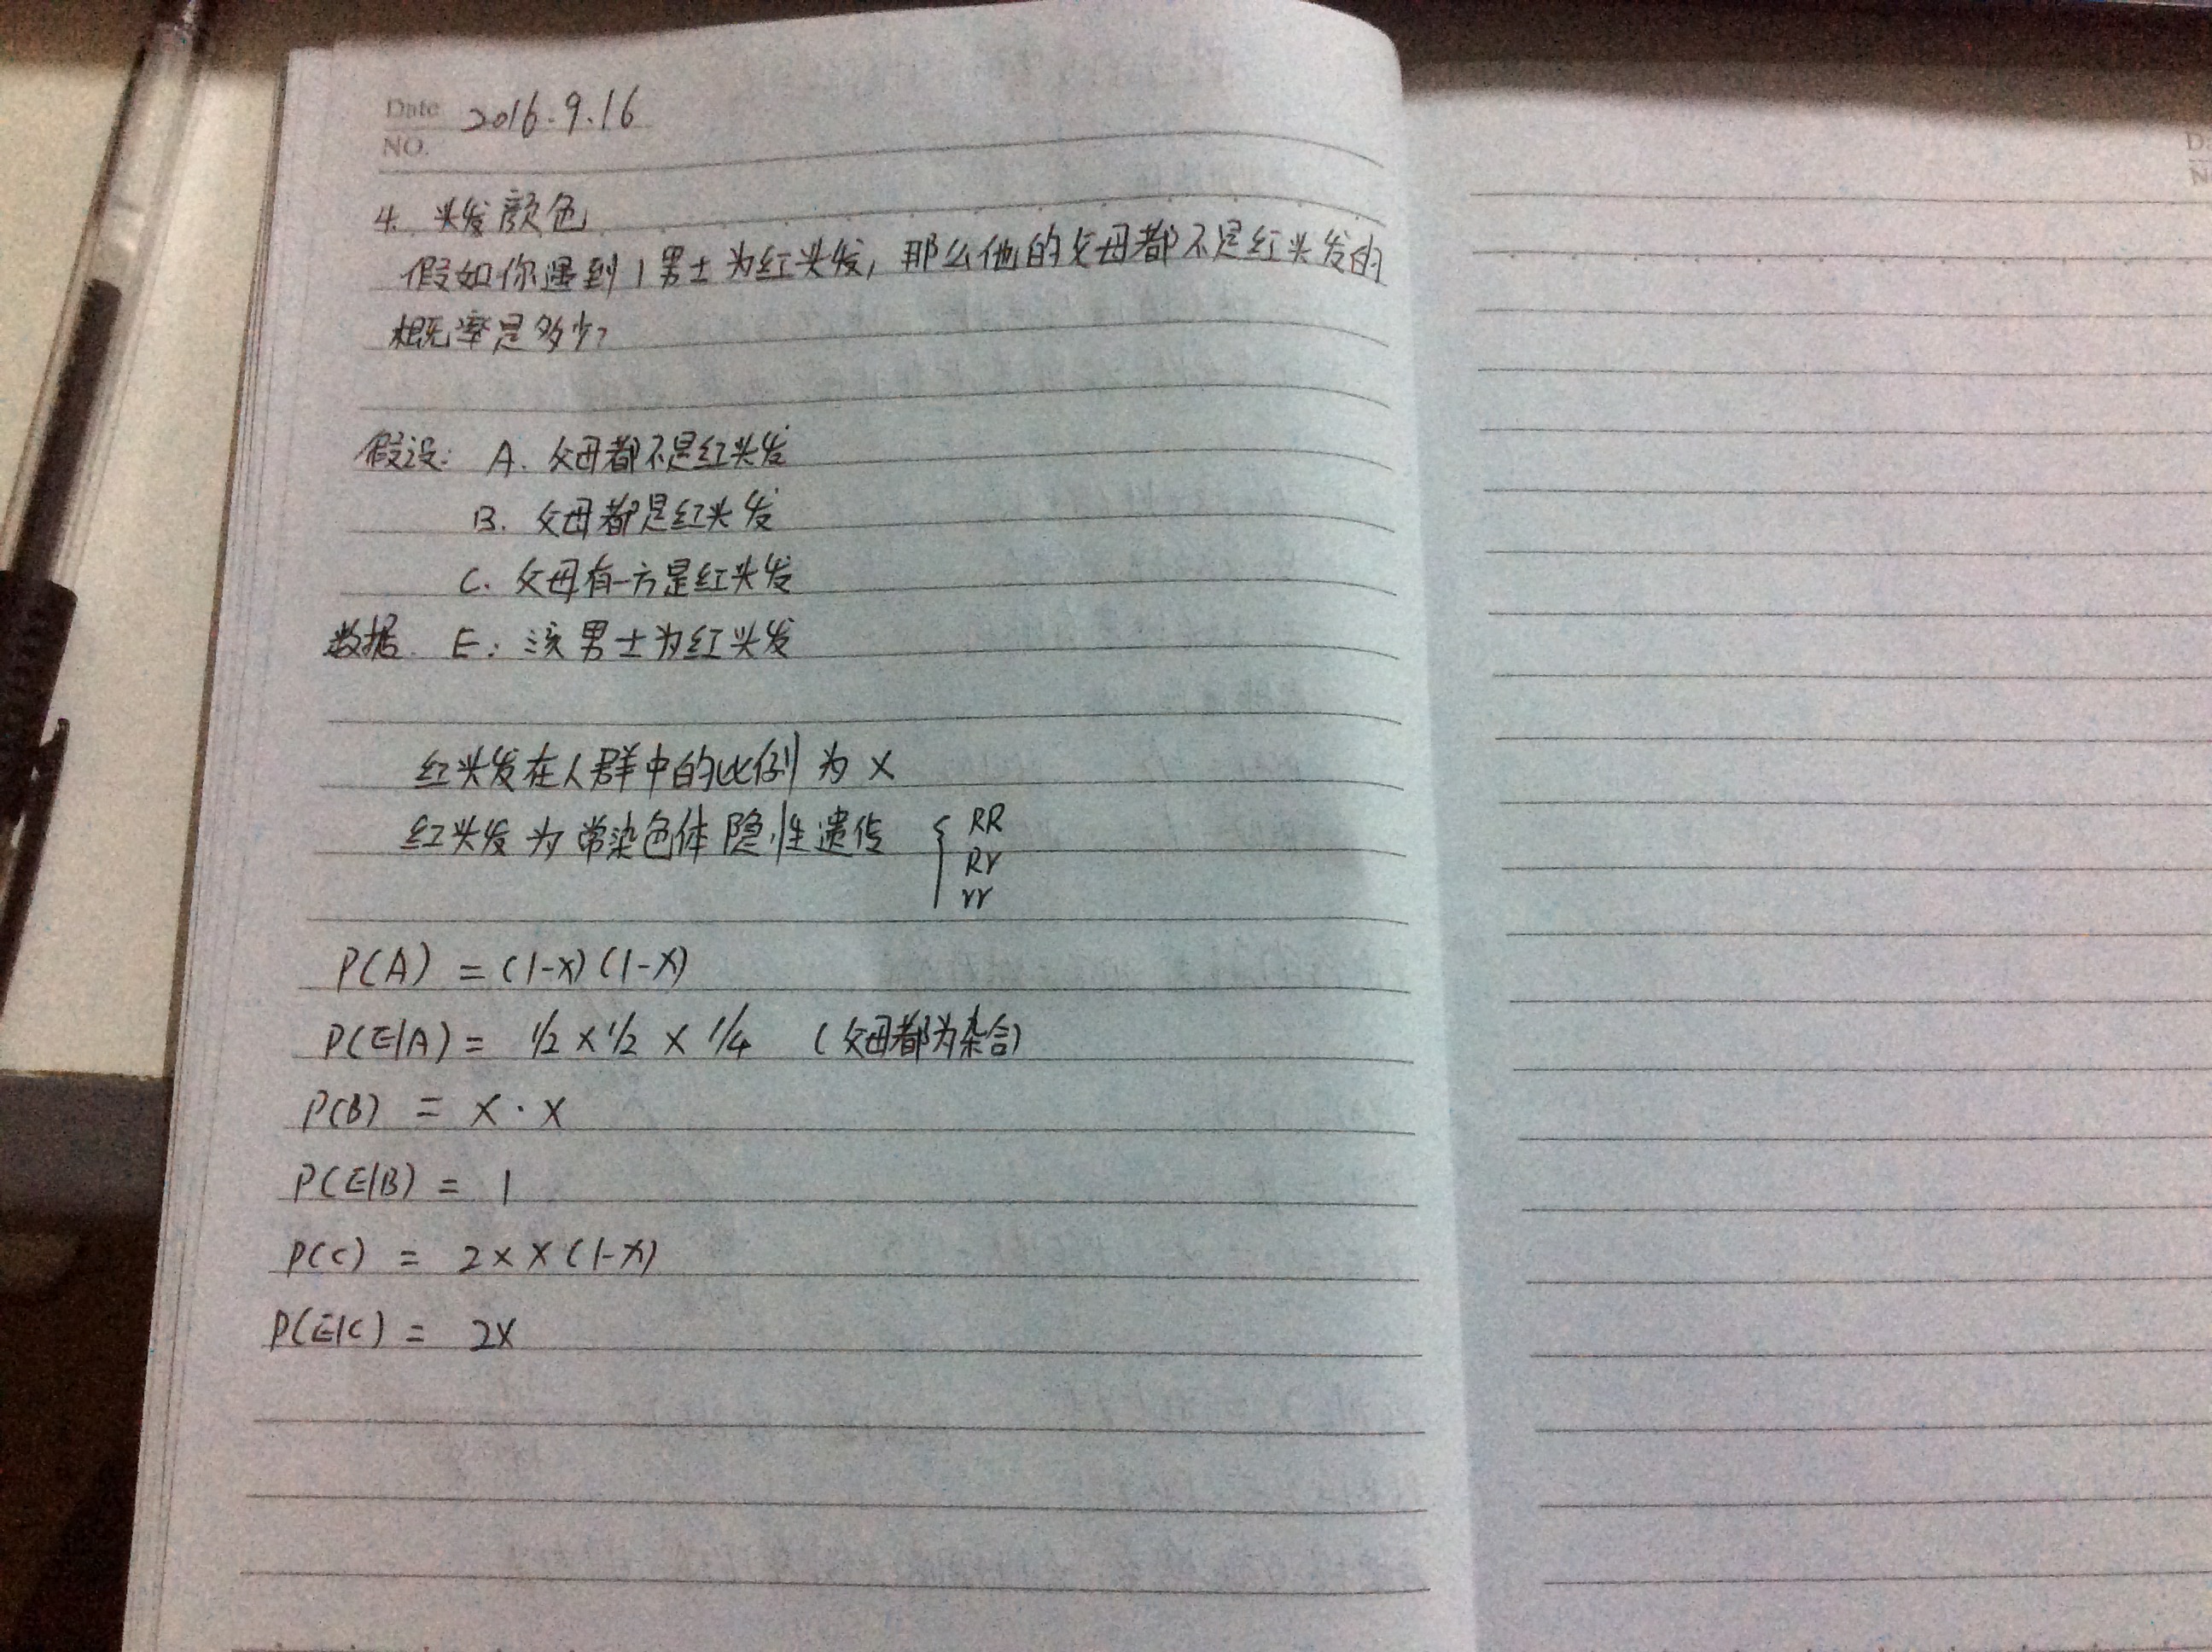 Date 2016.9.16
NO.
4. 头发颜色
假如你遇到1男士为红头发,那么他的父母都不是红头发的
概率是多少?
假设: A. 父母都不是红头发
B. 父母都是红头发
C. 父母有一方是红头发
数据. E: 该男士为红头发
红头发在人群中的比例为 x
红头发为常染色体隐性遗传 { RR
Rr
rr
P(A) = (1-x)(1-x)
P(E|A) = 1/2 × 1/2 × 1/4 (父母都为杂合)
P(B) = x · x
P(E|B) = 1
P(C) = 2 × x (1-x)
P(E|C) = 2x